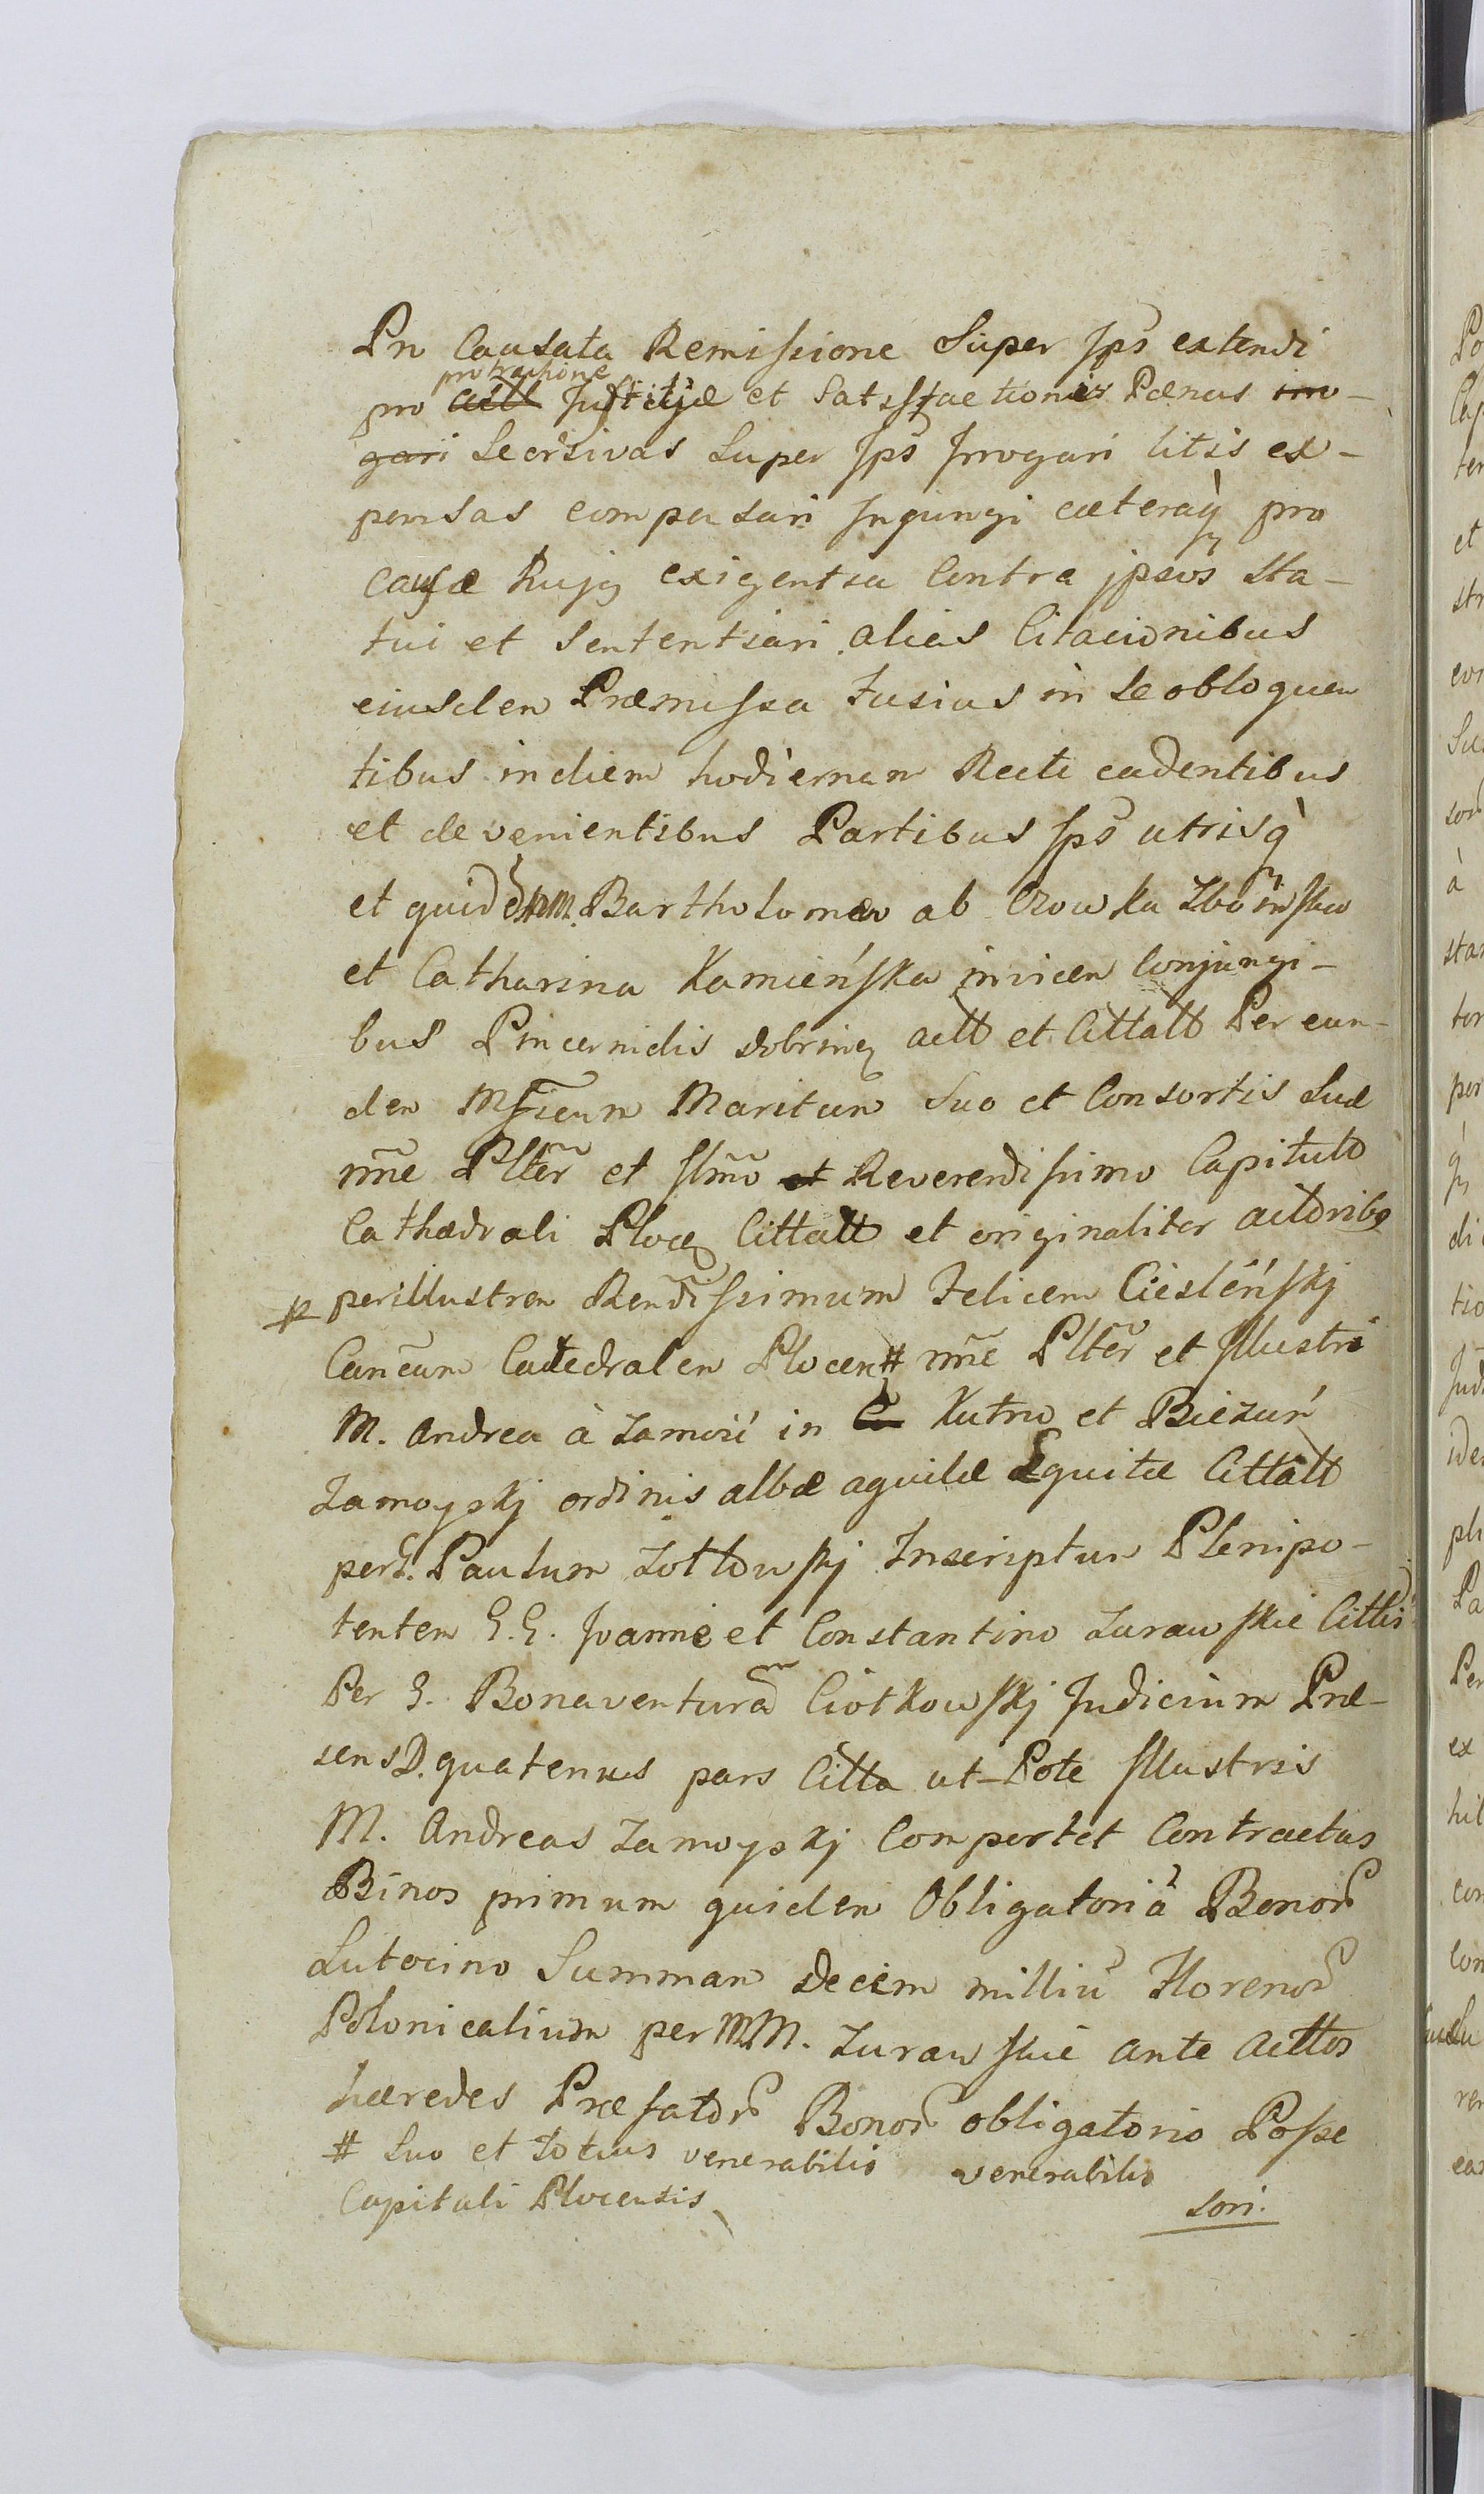 Pn Causata Remissione Super Jps extendi
protractione
pro actt Justitiæ et Satisfactionis Pænas irro-
gari Decisivas Super Jps Jrrogari litis ex-
pensas compensari Jnjungi cæteraq pro
causæ hujq exigentia Contra jpsos sta-
tui et Sententiari alias Citacionibus
eiusdem Præmissa fusius in Se obloquen
tibus in diem hodiernam Recte cadentibus
et devenientibus Partibus Jps utrisq
et quidem MM. Bartholomæo ab Ozowka Zboinskio
et Catharina Kamieńska invicem Conjungi-
bus Pincernidis Dobrinen actt et Cittatt Per eun-
dem Mficum Maritum Suo et Consortis Suæ
nne Plter et Jllmo et Reverendissimo Capitulo
Cathedrali Plocen Cittatt et originaliter actoribq
perillustrem Rendissimum Felicem Ciesleńskj
Cancum Catedralem Plocen # nne Plter et Jllustri
M. Andrea à Zamość in C Kutno et Bieżuń
Zamoyskj ordinis albæ aquilæ Equite Cittatt
per G. Paulum Zołtowskj Inscriptum Plenipo-
tentem G.G. Joanne et Constantino Zurawskie Cittis
Per G. Bonaventuram Ciołkowskj Judicium Præ-
sens D. quatenus pars Citta ut-Pote Jllustris
M. Andreas Zamoyskj Comportet Contractus
Binos primum quidem Obligatoriu Bonor
Lutocino Summam Decem milliu Florenor
Polonicalium per MM. Zurawskie ante acttos
hæredes Præfator Bonor obligatorio Posse
# Suo et Totius venerabilis venerabilis
Capituli Plocensis
sori.